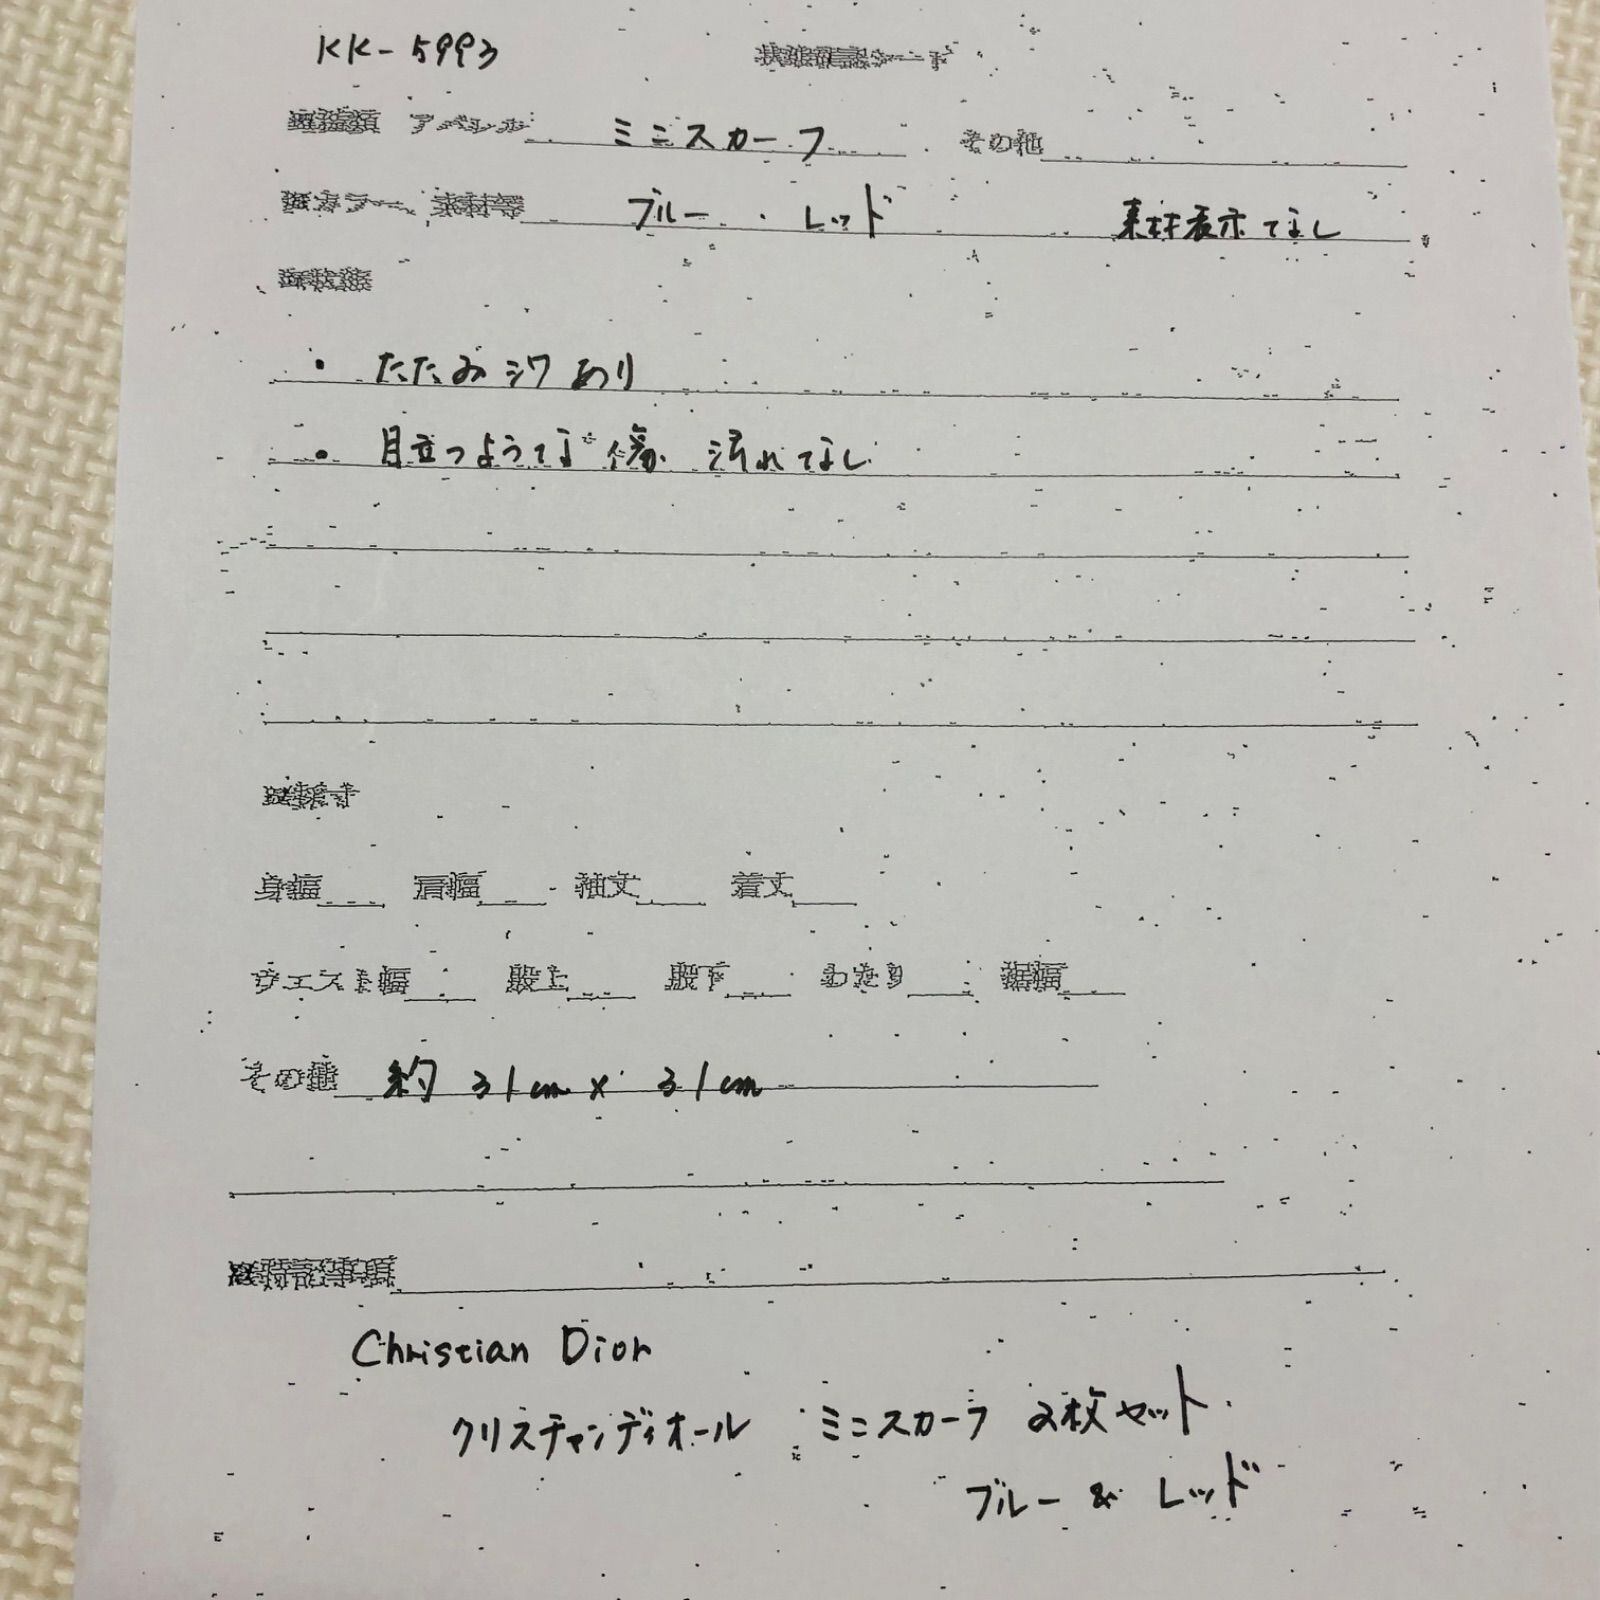 KK-5993
状態確認シート
種類 アパレル ミニスカーフ その他
カラー、素材等 ブルー・レッド 素材表示なし
状態
・たたみジワあり
・目立つような傷、汚れなし
採寸
身幅 肩幅 袖丈 着丈
ウエスト幅 股上 股下 わたり 裾幅
その他 約31cm×31cm
特記事項
Christian Dior
クリスチャンディオール ミニスカーフ 2枚セット
ブルー & レッド